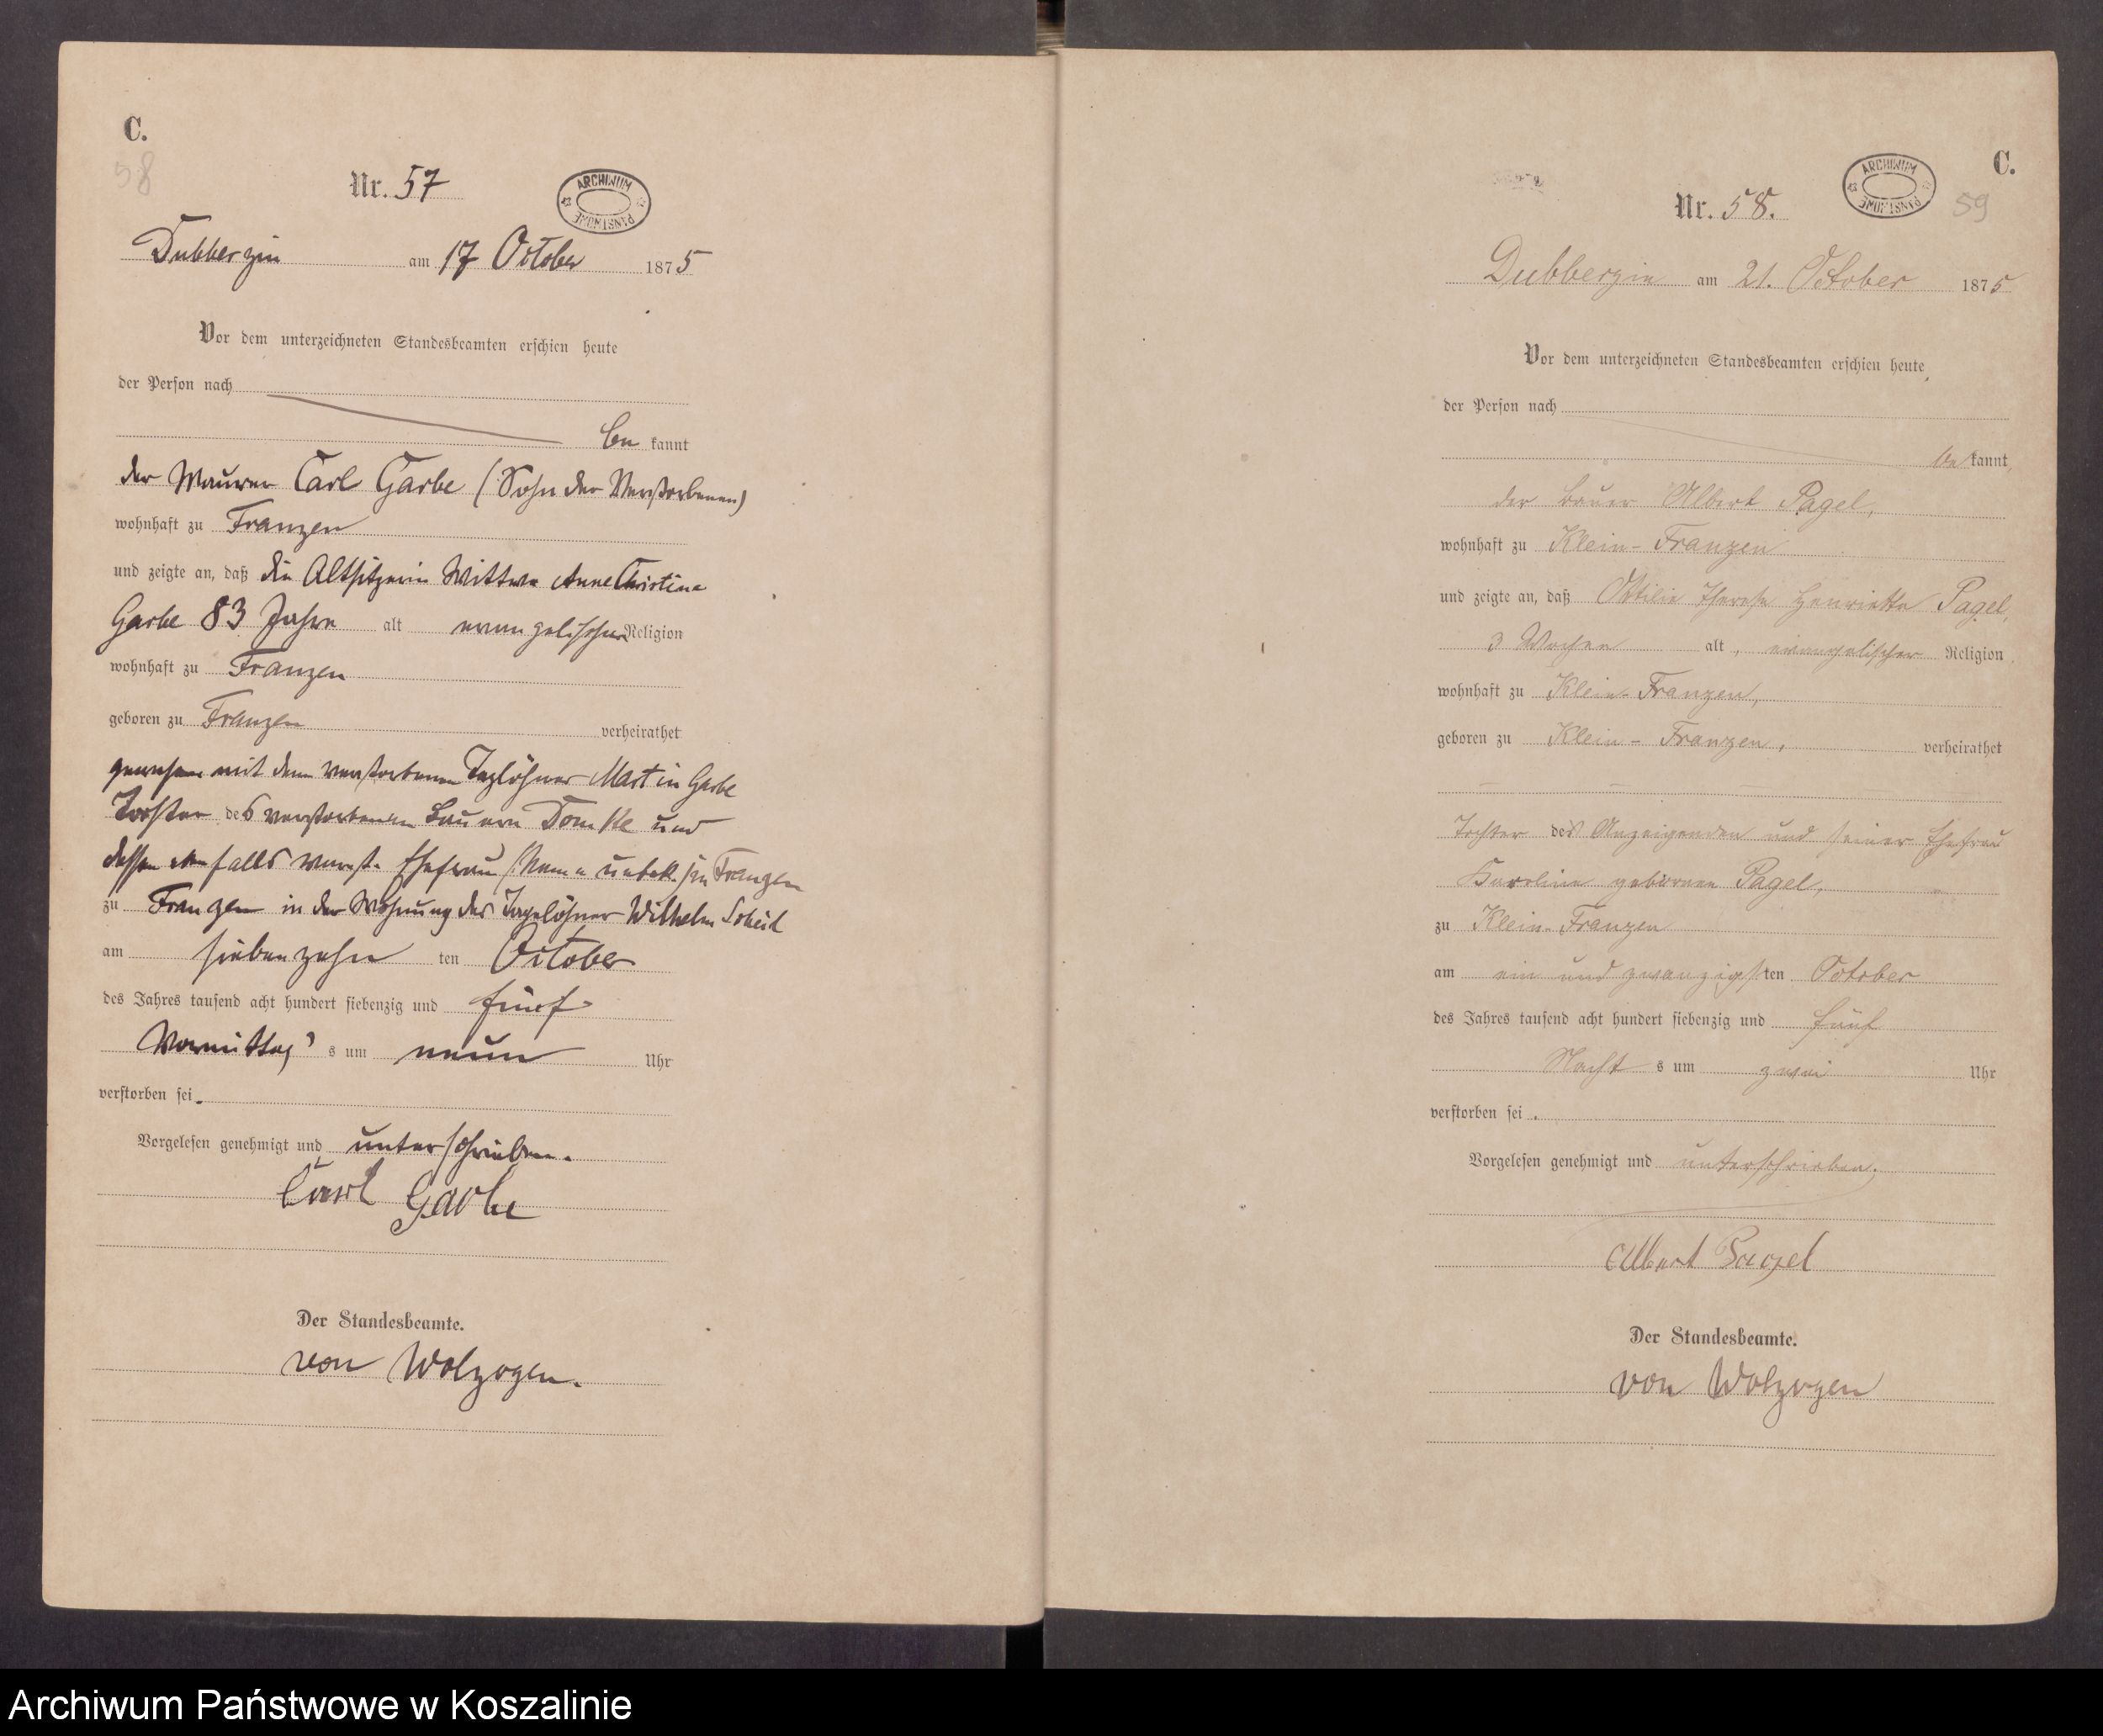 C.
58
Nr. 57
ARCHIWUM PAŃSTWOWE
Dubberzin am 17 October 1875
Vor dem unterzeichneten Standesbeamten erschien heute
der Person nach
be kannt
der Maurer Carl Garbe (Sohn der Verstorbenen)
wohnhaft zu Franzen
und zeigte an, daß die Altsitzerin Wittwe Anne Christine
Garbe 83 Jahre alt evangelischer Religion
wohnhaft zu Franzen
geboren zu Franzen verheirathet
gewesen mit dem verstorbenen Taglöhner Martin Garbe
Tochter des verstorbenen Bauern und
dessen ebenfalls verst. Ehefrau (Name unbek.) in Franzen
zu Franzen in der Wohnung des Tagelöhner Wilhelm
am siebenzehn ten October
des Jahres tausend acht hundert siebenzig und fünf
Vormittag s um neun Uhr
verstorben sei.
Vorgelesen genehmigt und unterschrieben.
Carl Garbe
Der Standesbeamte.
von Wolzogen.
C.
59
Nr. 58.
ARCHIWUM PAŃSTWOWE
Dubberzin am 21. October 1875
Vor dem unterzeichneten Standesbeamten erschien heute,
der Person nach
be kannt,
der Bauer Albert Pagel,
wohnhaft zu Klein-Franzen
und zeigte an, daß Ottilie Therese Henriette Pagel,
3 Wochen alt, evangelischer Religion
wohnhaft zu Klein-Franzen,
geboren zu Klein-Franzen, verheirathet
Tochter des Anzeigenden und seiner Ehefrau
Karoline geborene Pagel,
zu Klein-Franzen
am ein und zwanzigsten October
des Jahres tausend acht hundert siebenzig und fünf
Nacht s um zwei Uhr
verstorben sei.
Vorgelesen genehmigt und unterschrieben.
Albert Pagel
Der Standesbeamte.
von Wolzogen
Archiwum Państwowe w Koszalinie